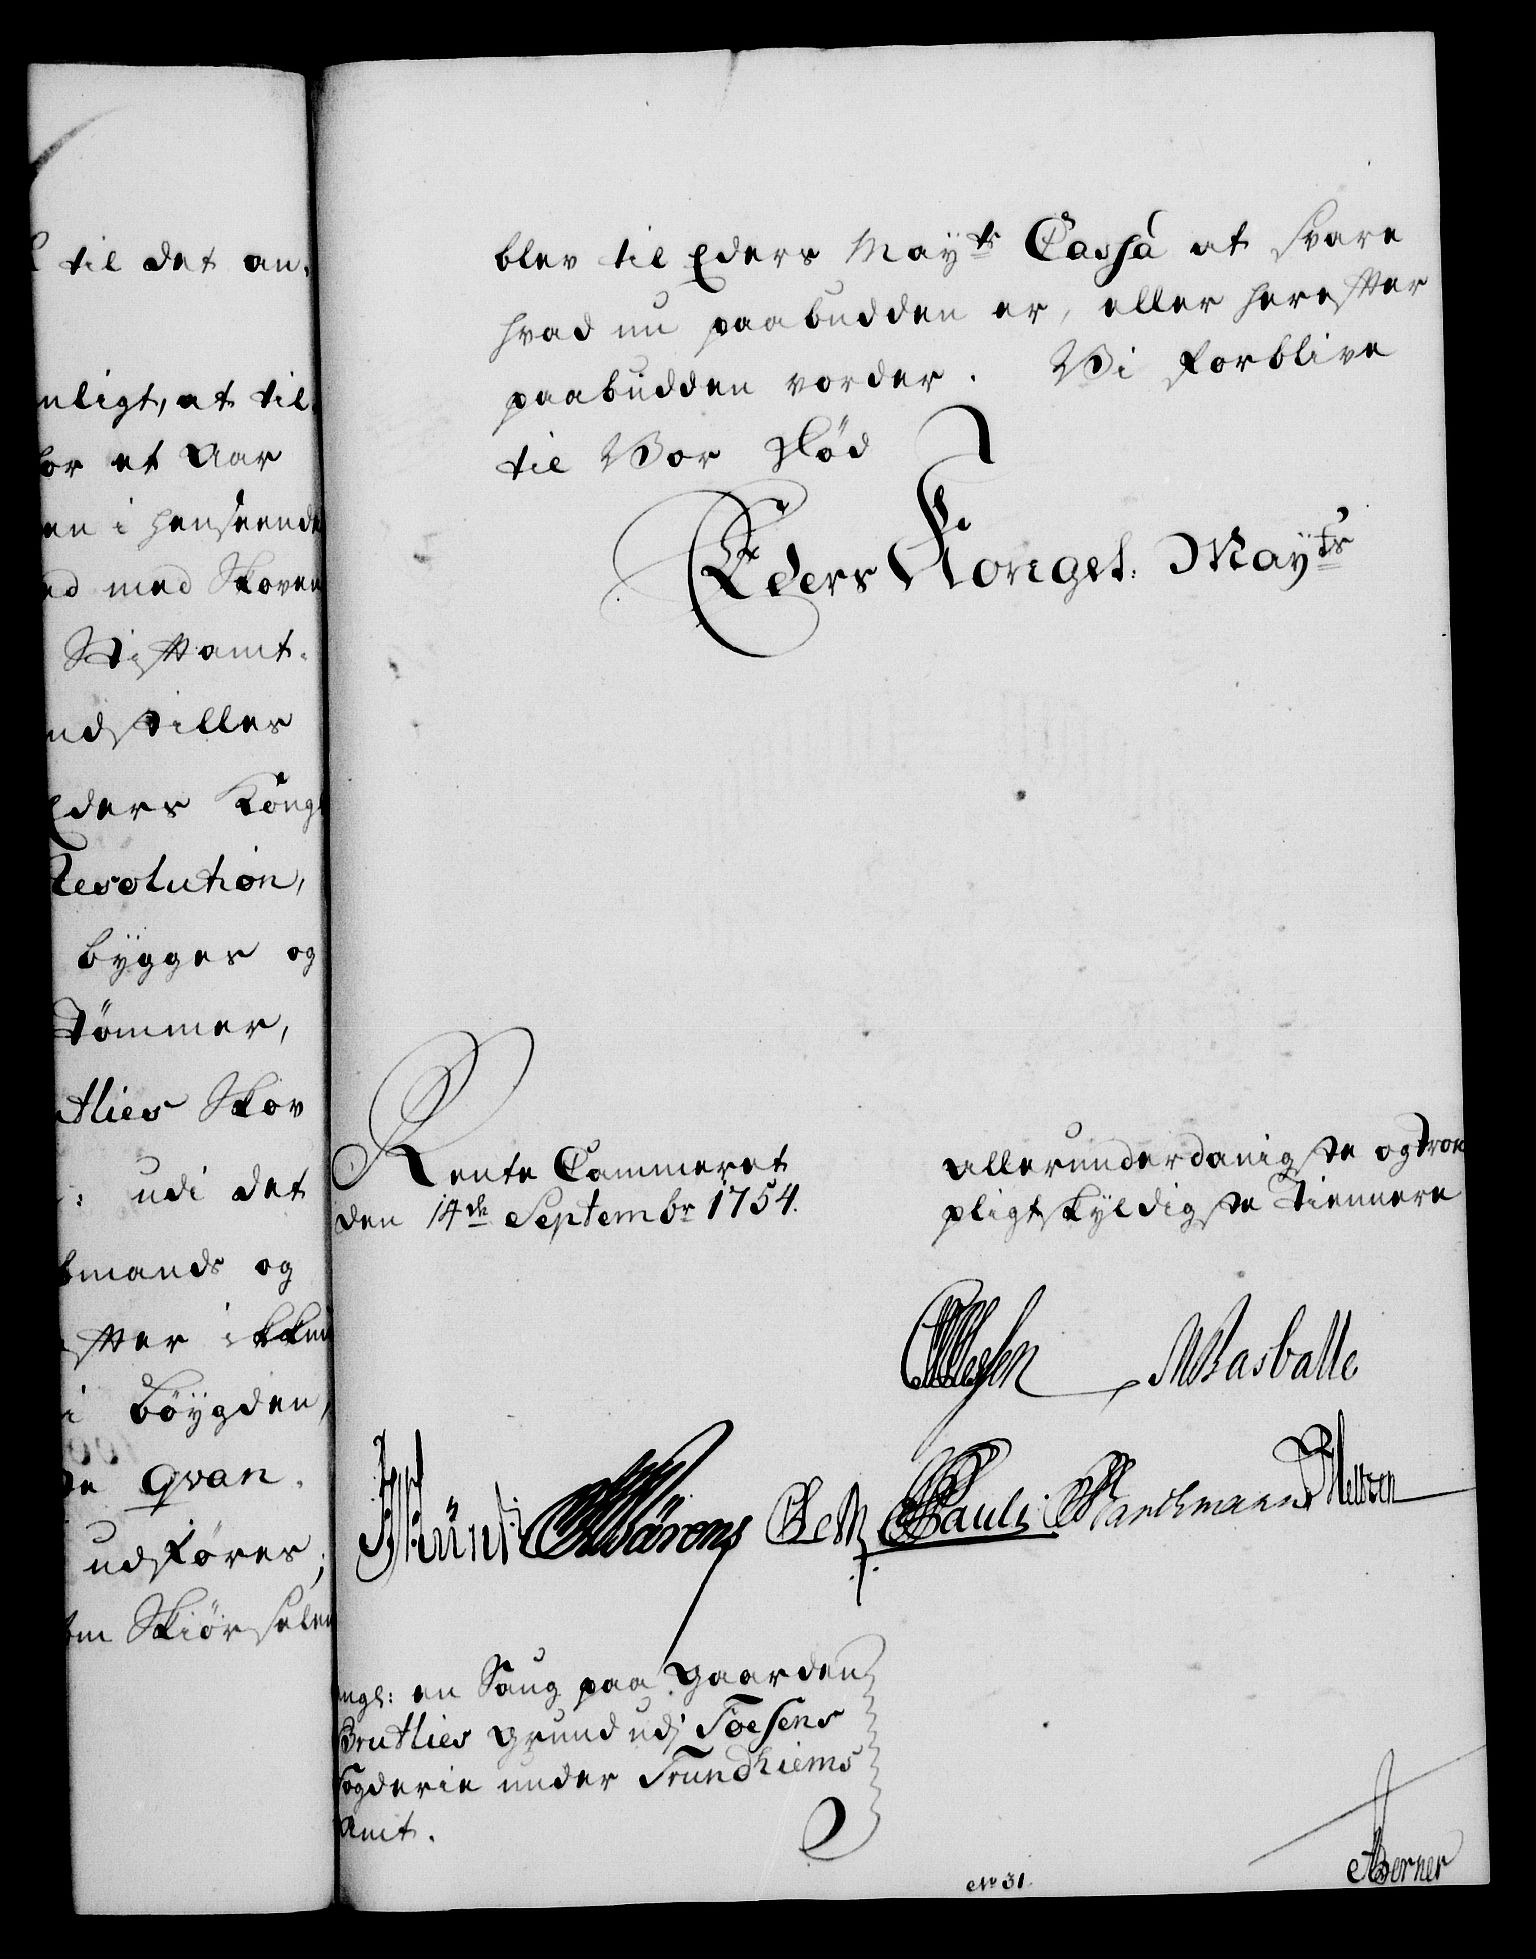 til det an-
nligt, at til-
for et Aar
en i henseende
ed med Skoven
Stiftamt-
indstiller
Eders Kongl
Resolution,
bygges og
Tömmer,
tlies Skov
: udi det
bmands og
efter ikkun
i böygden,
de qvan-
udföres;
om Skiörselen
blev til Eders Mayts Cassa at svare
hvad nu paabudden er, eller herefter
paabudden vorder. Vi forblive
til Vor Död
Eders Kongel: Mayts
Rente Cammeret
den 14de Septembr 1754.
allerunderdanigste og troe
pligtskyldigste Tiennere
MBasballe
Pauli
ngl: en Saug paa gaarden
Brutlies grund udj Foesens
fogderie under Trundhiems
Amt.
No 31.
Berner